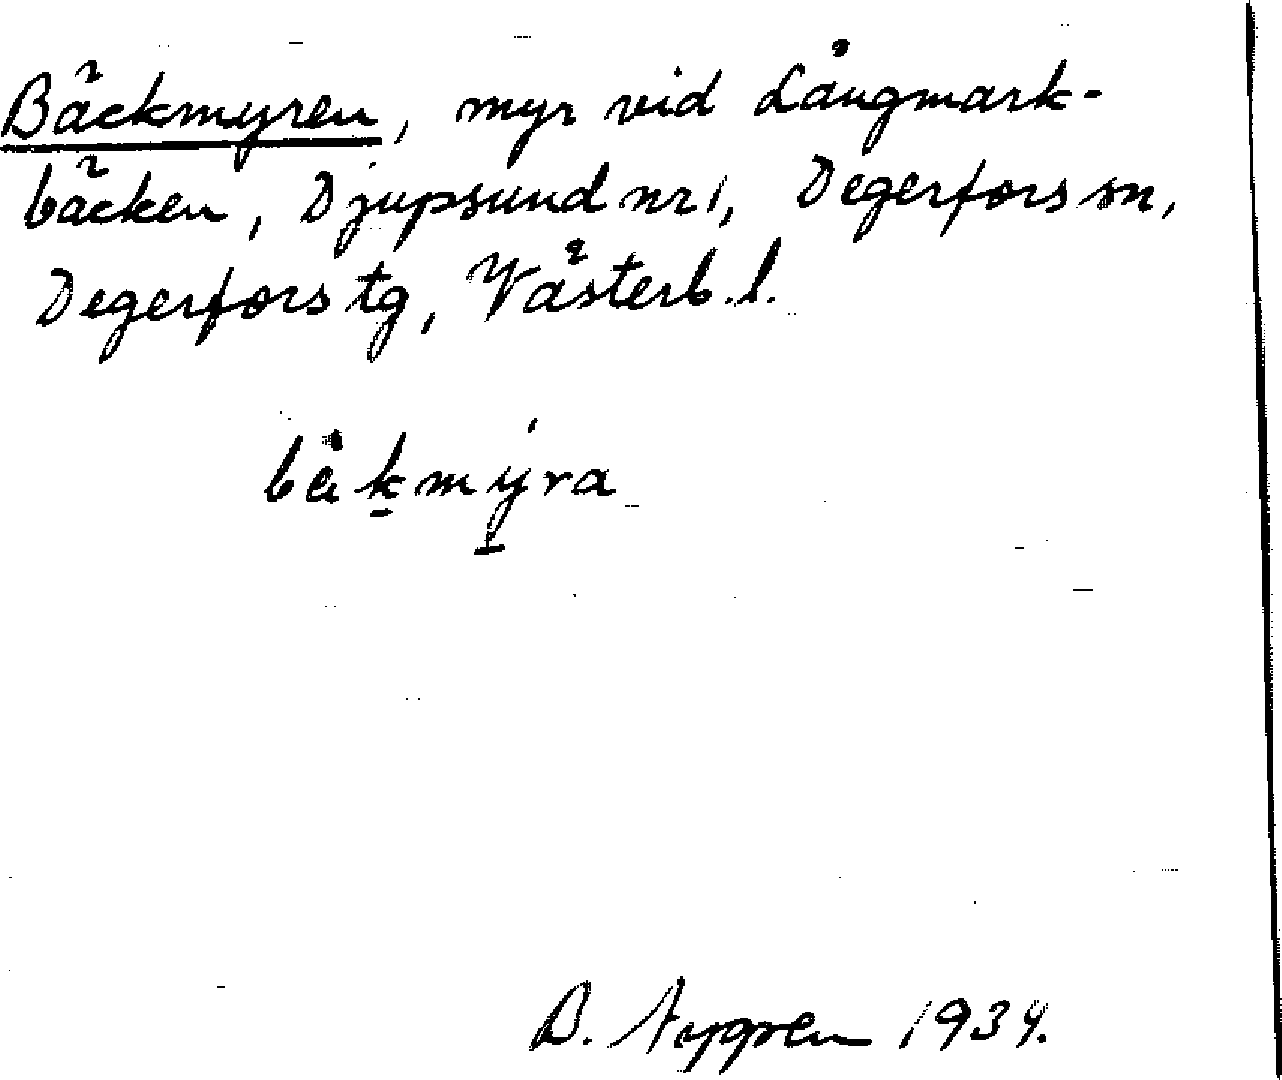 Bäckmyren, myr vid Långmark-
bäcken, Djupsund nr 1, Degerfors sn,
Degerfors tg, Västerb. l.
bä̀km̱ýra
B. Nygren 1934.